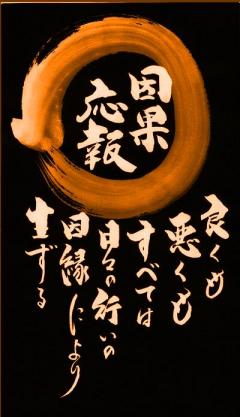 因果
応報
良くも
悪くも
すべては
日々の行いの
因縁により
生ずる